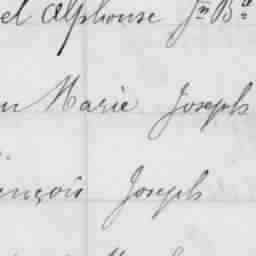 el Alphonse Jn Bte
n Marie Joseph
ençois Joseph